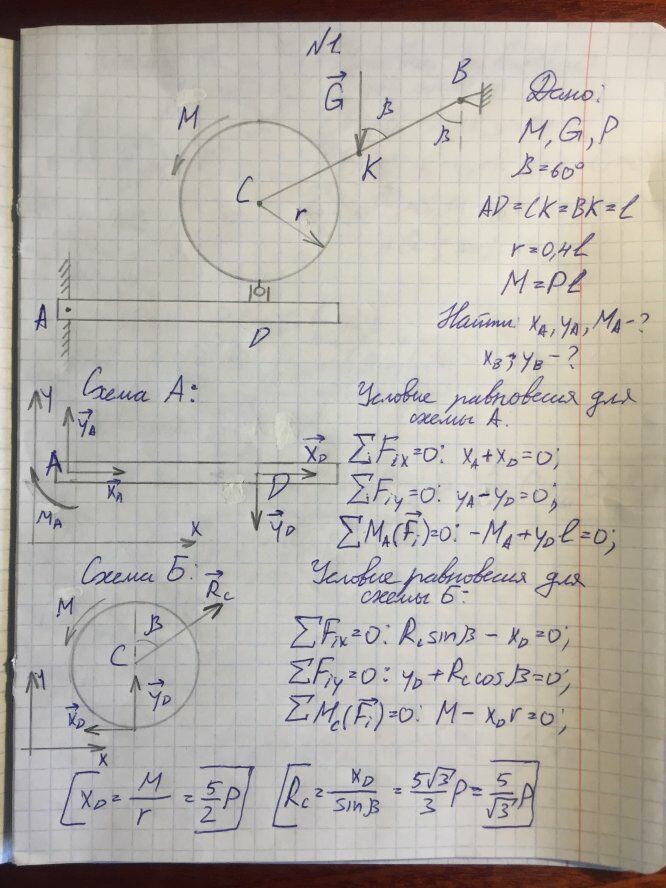 N1
G
B
M
β
β
K
C
r
A
D
Дано:
M, G, P
β=60°
AD=CK=BK=l
r=0,4l
M=Pl
Найти: xA, yA, MA-?
xB; yB-?
Схема А:
y
yA
A
xA
MA
xD
D
yD
x
Условие равновесия для
схемы А.
∑Fix=0: xA+xD=0;
∑Fiy=0: yA-yD=0;
∑MA(Fi)=0: -MA+yDl=0;
Схема Б:
Rc
M
β
C
y
yD
xD
x
Условие равновесия для
схемы Б:
∑Fix=0: Rc sinβ - xD=0;
∑Fiy=0: yD+Rc cosβ=0;
∑Mc(Fi)=0: M-xDr=0;
xD=M/r=5/2P
Rc=xD/sinβ=5√3/3P=5/√3P